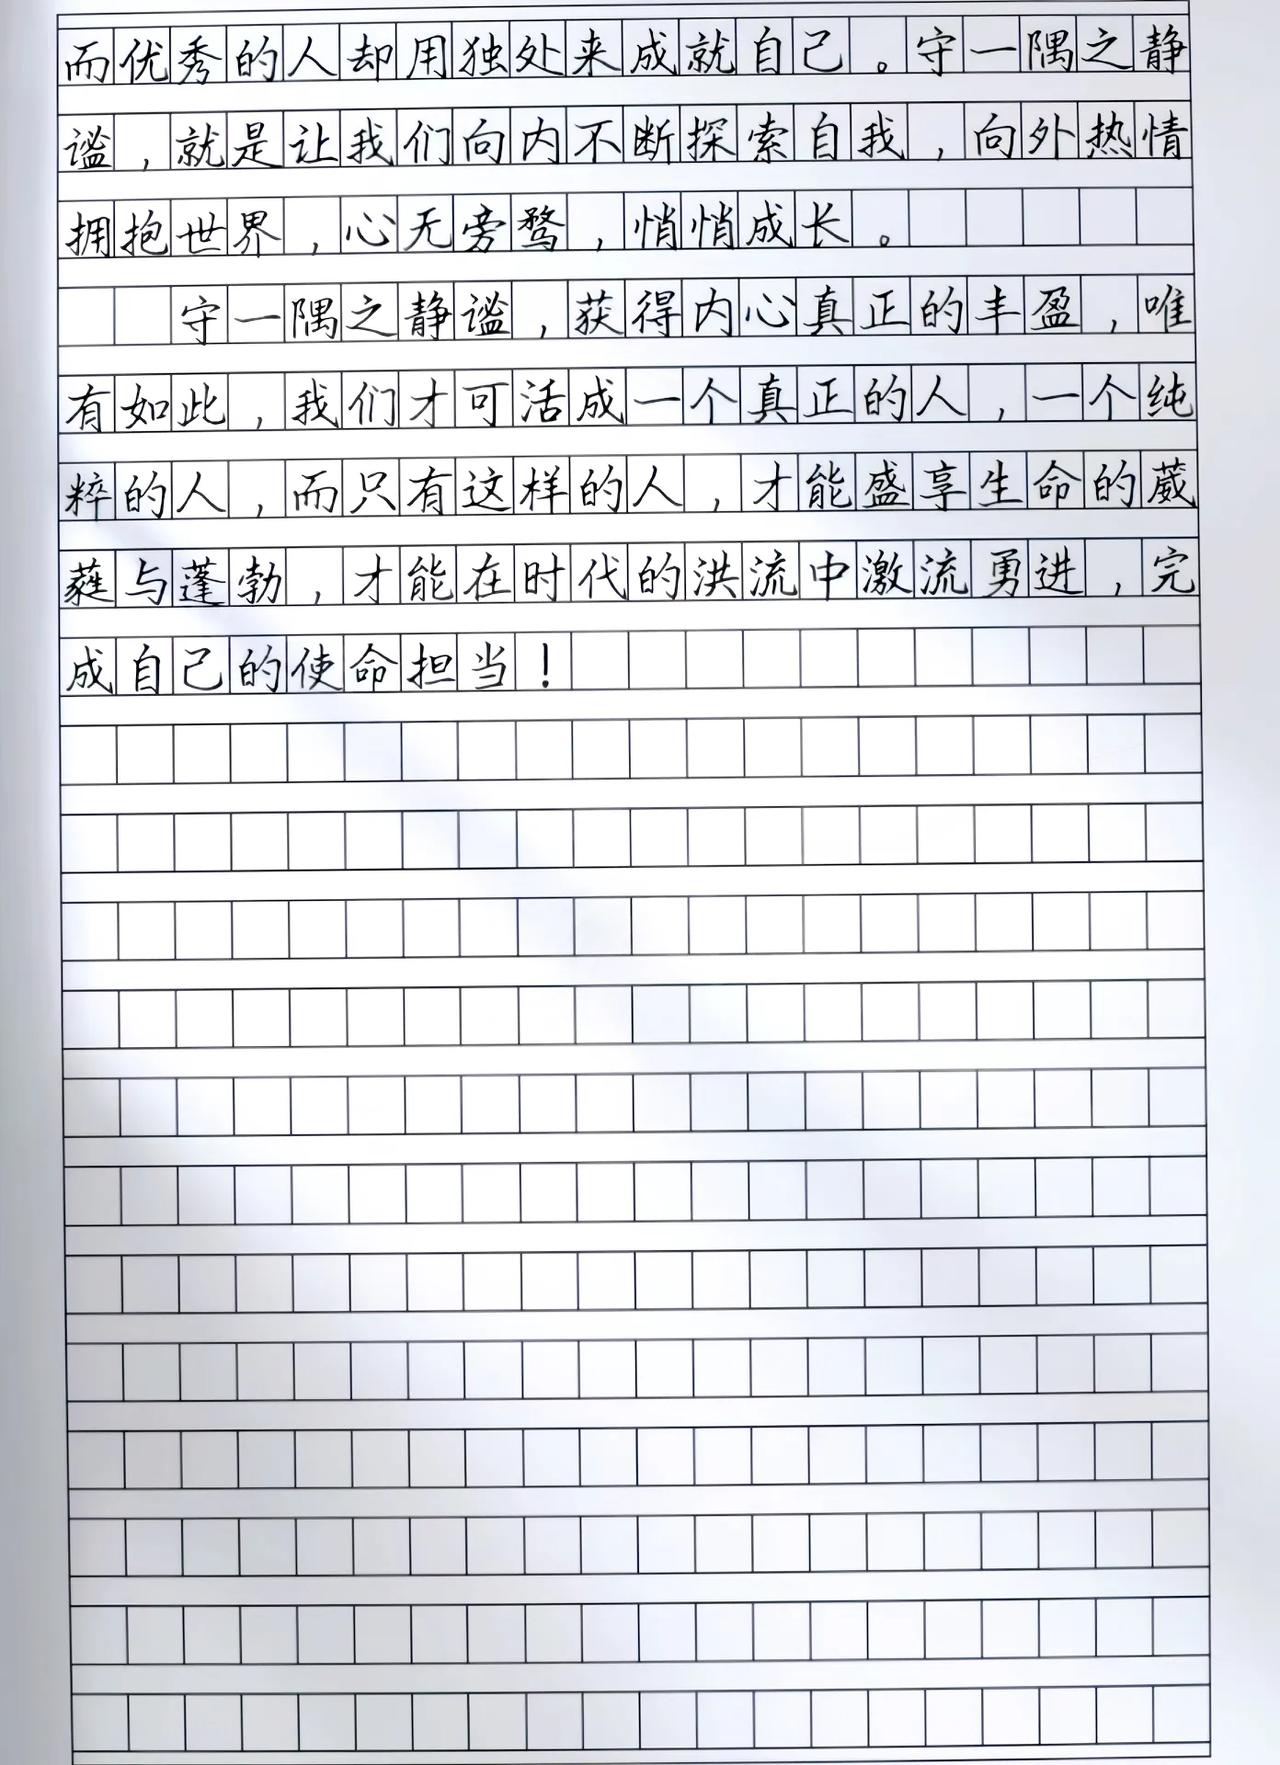 而优秀的人却用独处来成就自己。守一隅之静
谧，就是让我们向内不断探索自我，向外热情
拥抱世界，心无旁骛，悄悄成长。
守一隅之静谧，获得内心真正的丰盈，唯
有如此，我们才可活成一个真正的人，一个纯
粹的人，而只有这样的人，才能盛享生命的葳
蕤与蓬勃，才能在时代的洪流中激流勇进，完
成自己的使命担当！